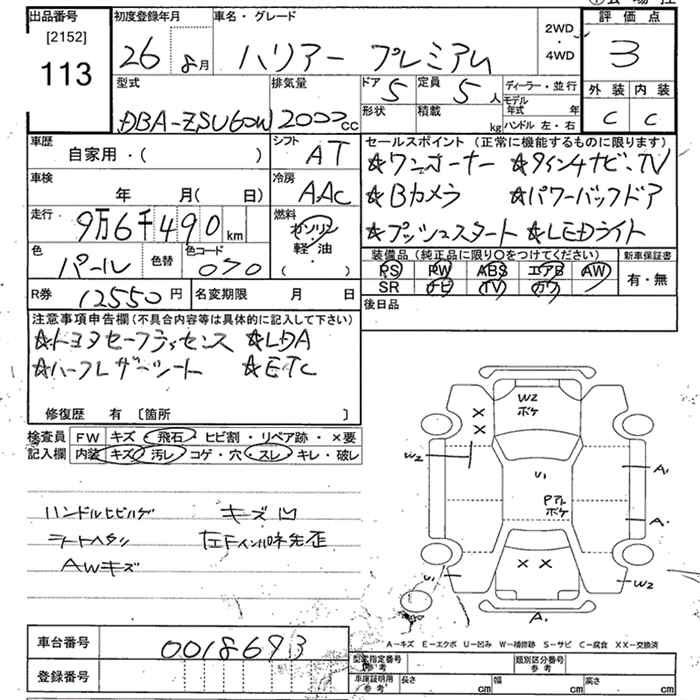 出品番号
[2152]
113
初度登録年月
26年 8月
車名・グレード
ハリアー プレミアム
2WD
・
4WD
評価点
3
外装 内装
C C
型式
DBA-ZSU60W
排気量
2000cc
ドア 5
形状
定員 5人
積載 kg
ディーラー・並行
モデル年式 年
ハンドル 左・右
車歴
自家用・( )
シフト
AT
車検
年 月( 日)
冷房
AAC
走行
9万6千490km
燃料
ガソリン
軽・油
・
( )
色
パール
色替
色コード
070
セールスポイント (正常に機能するものに限ります)
☆ワンオーナー ☆9インチナビ、TV
☆Bカメラ ☆パワーバックドア
☆プッシュスタート ☆LEDライト
装備品(純正品に限り○をつけてください)
PS PW ABS エアB AW
SR ナビ TV カワ
新車保証書
有・無
R券 12550円
名変期限 月 日
後日品
注意事項申告欄(不具合内容等は具体的に記入して下さい)
☆トヨタセーフティセンス ☆LDA
☆ハーフレザーシート ☆ETC
修復歴 有 〔箇所 〕
検査員 FW キズ・飛石・ヒビ割・リペア跡・×要
記入欄 内装 キズ・汚レ・コゲ・穴・スレ・キレ・破レ
キズ凹
AWキズ
W2
ボケ
XX
W2
A1
U1
Pアト
ボケ
A1
XX
U1
W2
A1
A-キズ E-エクボ U-凹み W-補修跡 S-サビ C-腐食 XX-交換済
車台番号 0018693
登録番号
型式指定番号 参考
類別区分番号 参考
車庫証明用 参考
長さ cm 幅 cm 高さ cm